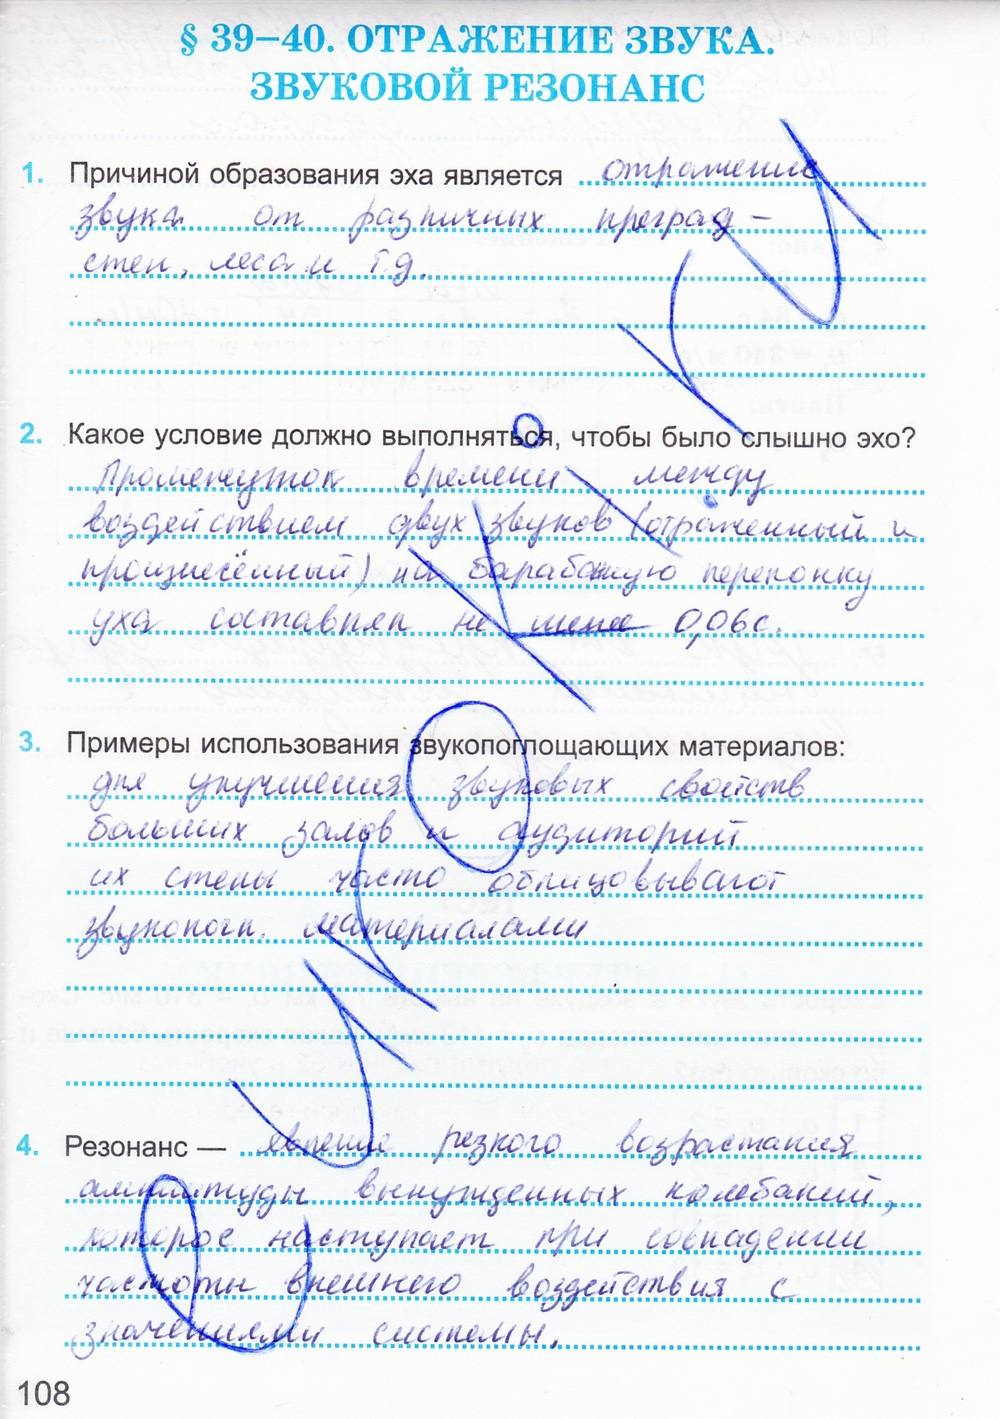 § 39–40. ОТРАЖЕНИЕ ЗВУКА.
ЗВУКОВОЙ РЕЗОНАНС
1. Причиной образования эха является отражение
звука от различных преград –
стен, леса и т.д.
2. Какое условие должно выполняться, чтобы было слышно эхо?
Промежуток времени между
воздействием двух звуков (отраженный и
произнесённый) на барабанную перепонку
уха составлял не менее 0,06с.
3. Примеры использования звукопоглощающих материалов:
для улучшения звуковых свойств
больших залов и аудиторий
их стены часто облицовывают
звукопогл. материалами
4. Резонанс — явление резкого возрастания
амплитуды вынужденных колебаний,
которое наступает при совпадении
частоты внешнего воздействия с
значениями системы.
108